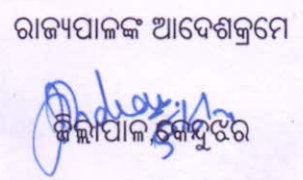 ରାଜ୍ୟପାଳଙ୍କ ଆଦେଶକ୍ରମେ
ଜିଲ୍ଲାପାଳ, କେନ୍ଦୁଝର